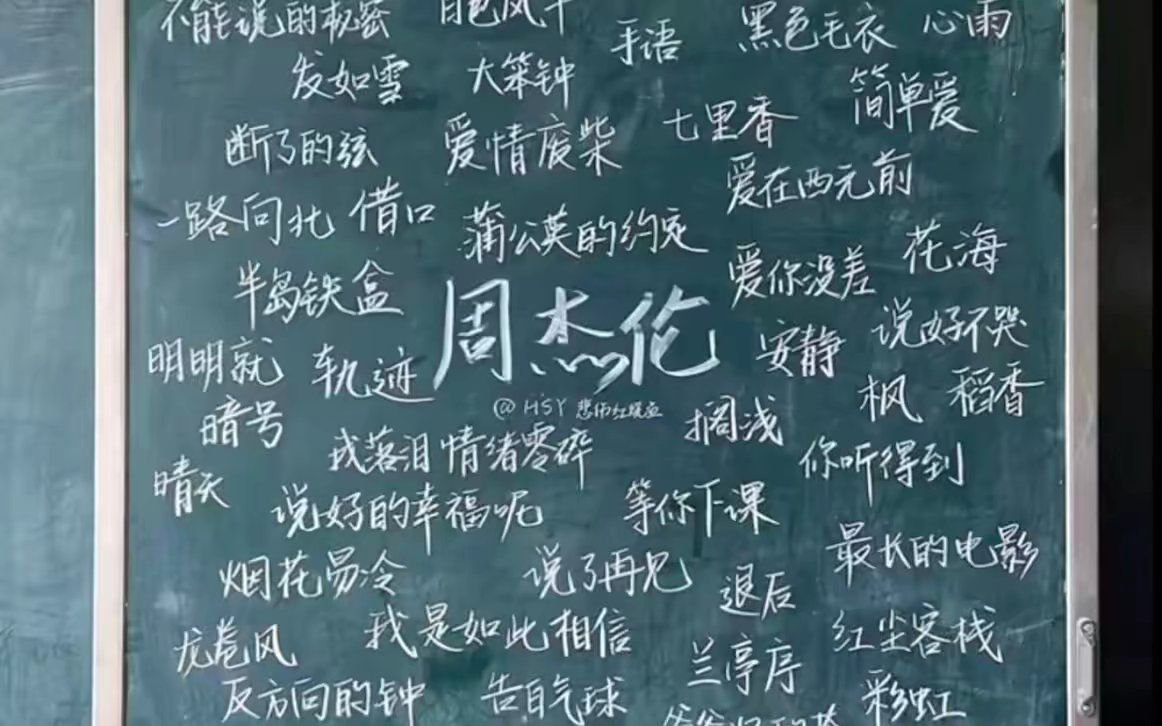 不能说的秘密 白色风车 手语 黑色毛衣 心雨
发如雪 大笨钟 简单爱
断了的弦 爱情废柴 七里香
爱在西元前
一路向北 借口 蒲公英的约定 花海
半岛铁盒 爱你没差
周杰伦 说好不哭
明明就 轨迹 安静
枫 稻香
@HSY
暗号 搁浅
或落泪情绪零碎 你听得到
晴天
说好的幸福呢 等你下课
最长的电影
烟花易冷 说了再见
退后
龙卷风 我是如此相信 红尘客栈
兰亭序
反方向的钟 告白气球 彩虹